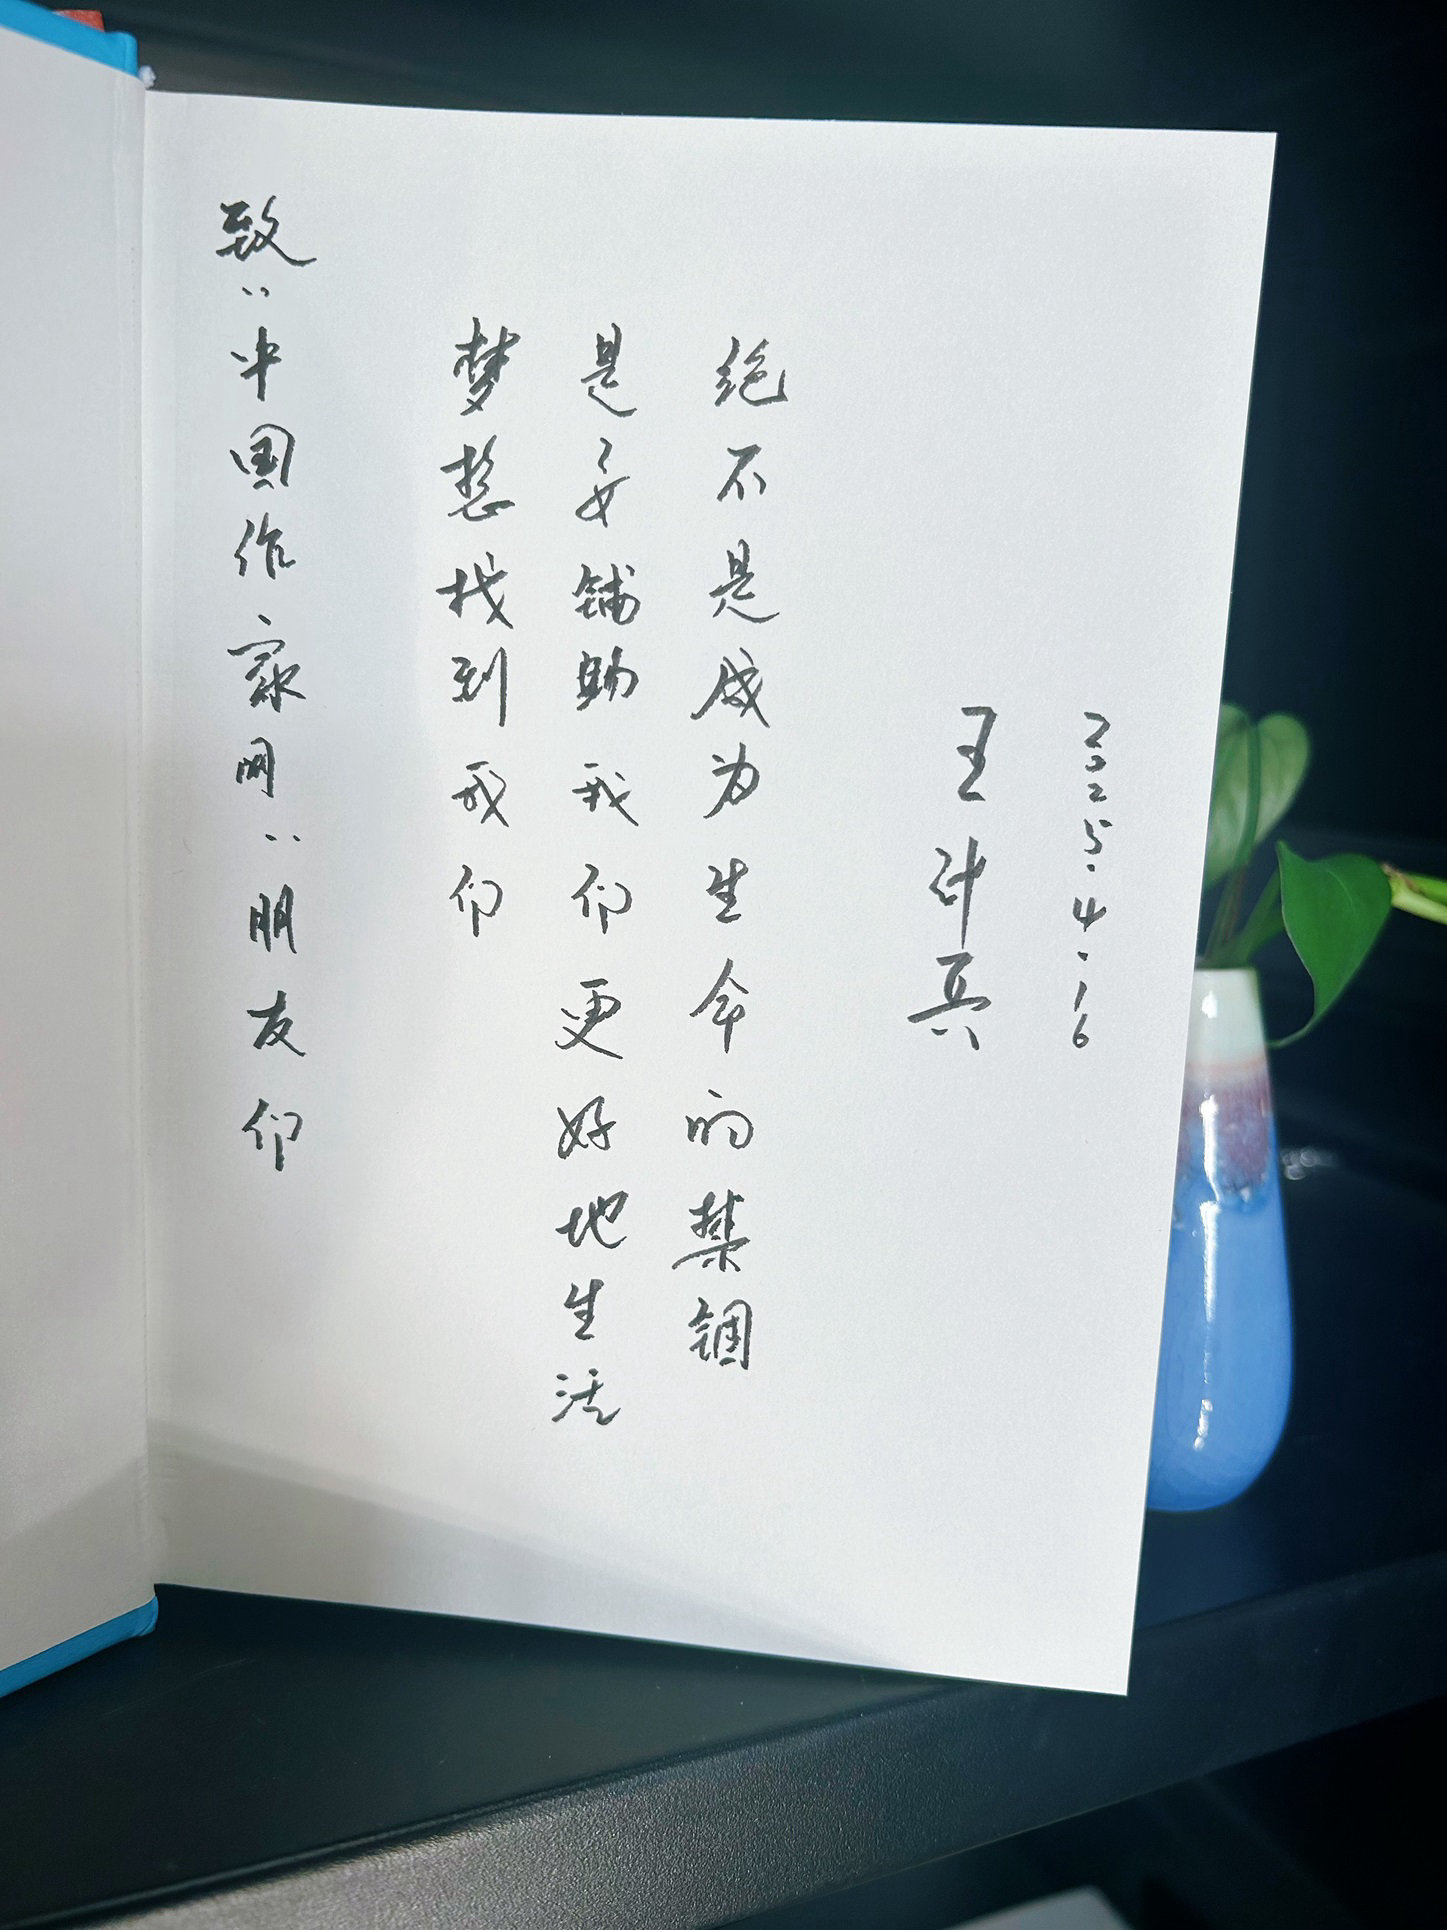 致：中国作家网：朋友们
梦想找到我们
是要铺助我们更好地生活
绝不是成为生命的禁锢
王计兵
2025.4.16